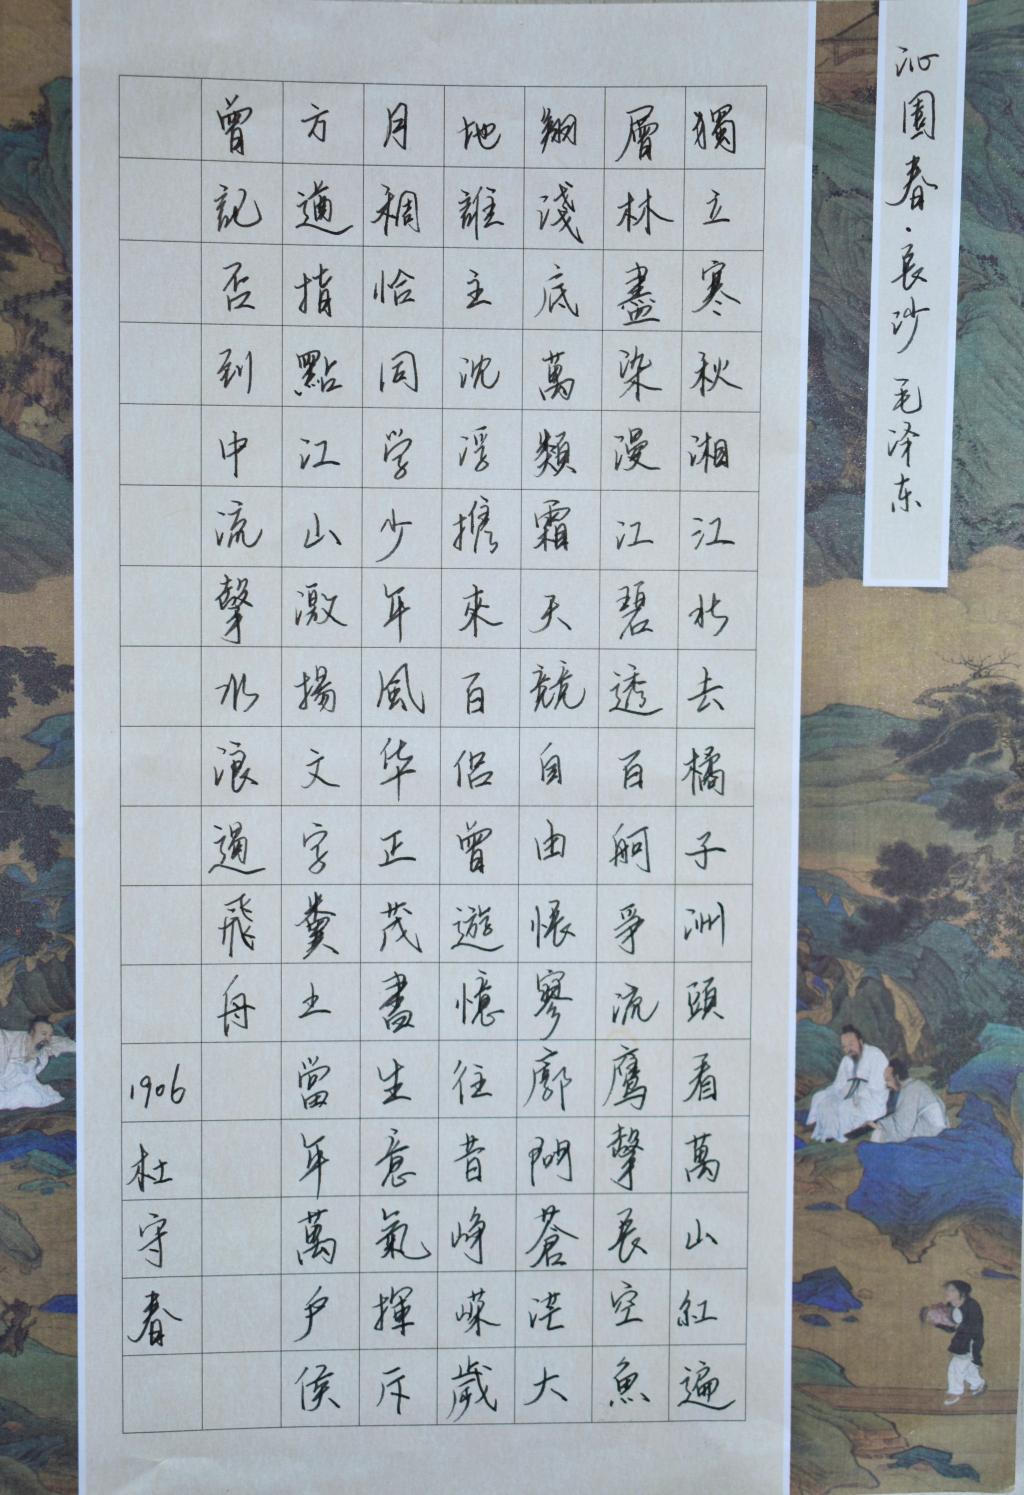 沁園春·長沙 毛泽东
獨立寒秋湘江北去橘子洲頭看萬山紅遍
層林盡染漫江碧透百舸爭流鹰擊長空魚
翔淺底萬類霜天競自由悵寥廓問蒼茫大
地誰主沈浮擕來百侣曾遊憶往昔峥嵘歲
月稠恰同学少年風华正茂書生意氣揮斥
方遒指點江山激揚文字糞土當年萬户侯
曾記否到中流擊水浪遏飛舟
1906
杜守春